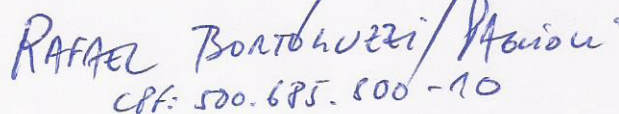 RAFAEL BORTOLUZZI PAGLIOLI
CPF: 500.685.800-10